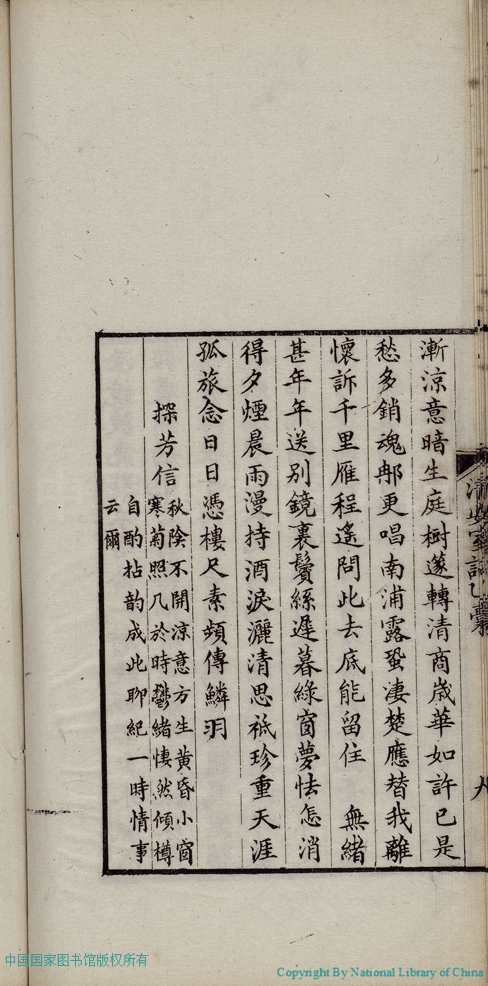 漸涼意暗生庭樹邃轉清商歲華如許已是
愁多銷魂那更唱南浦露蛩淒楚應替我離
懷訴千里雁程遙問此去底能留住　無緒
甚年年送別鏡裏鬢絲遲暮綠窗夢怯怎消
得夕煙晨雨漫持酒淚灑清思祇珍重天涯
孤旅念日日憑樓尺素頻傳鱗羽
探芳信
秋陰不開涼意方生黃昏小窗
寒菊照几於時鬱緒悽然傾樽
自酌拈韵成此聊紀一時情事
云爾
中国国家图书馆版权所有
Copyright By National Library of China